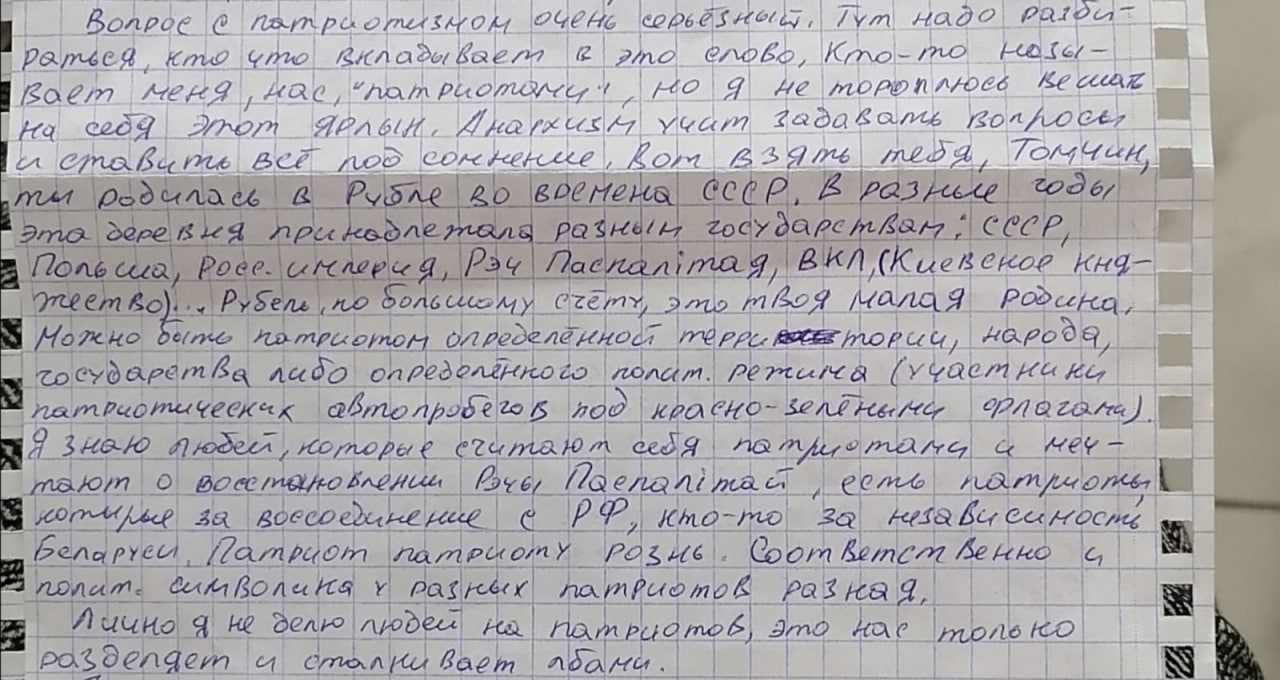 Вопрос с патриотизмом очень серьёзный. Тут надо разби-
раться, кто что вкладывает в это слово, Кто-то назы-
вает меня, нас, "патриотами", но я не тороплюсь вешать
на себя этот ярлык. Анархизм учит задавать вопросы
и ставить всё под сомнение. Вот взять тебя, Томчин,
ты родилась в Рубле во времена СССР. В разные годы
эта деревня принадлежала разным государствам: СССР,
Польша, Росс. империя, Рэч Паспалітая, ВКЛ, (Киевское кня-
жество)... Рубель, по большому счёту, это твоя малая родина.
Можно быть патриотом определённой территории, народа,
государства либо определённого полит. режима (участники
патриотических автопробегов под красно-зелёными флагами).
Я знаю людей, которые считают себя патриотами и меч-
тают о восстановлении Рэчы Паспалітай, есть патриоты,
которые за воссоединение с РФ, кто-то за независимость
Беларуси. Патриот патриоту рознь. Соответственно и
полит. символика у разных патриотов разная.
Лично я не делю людей на патриотов, это нас только
разделяет и сталкивает лбами.